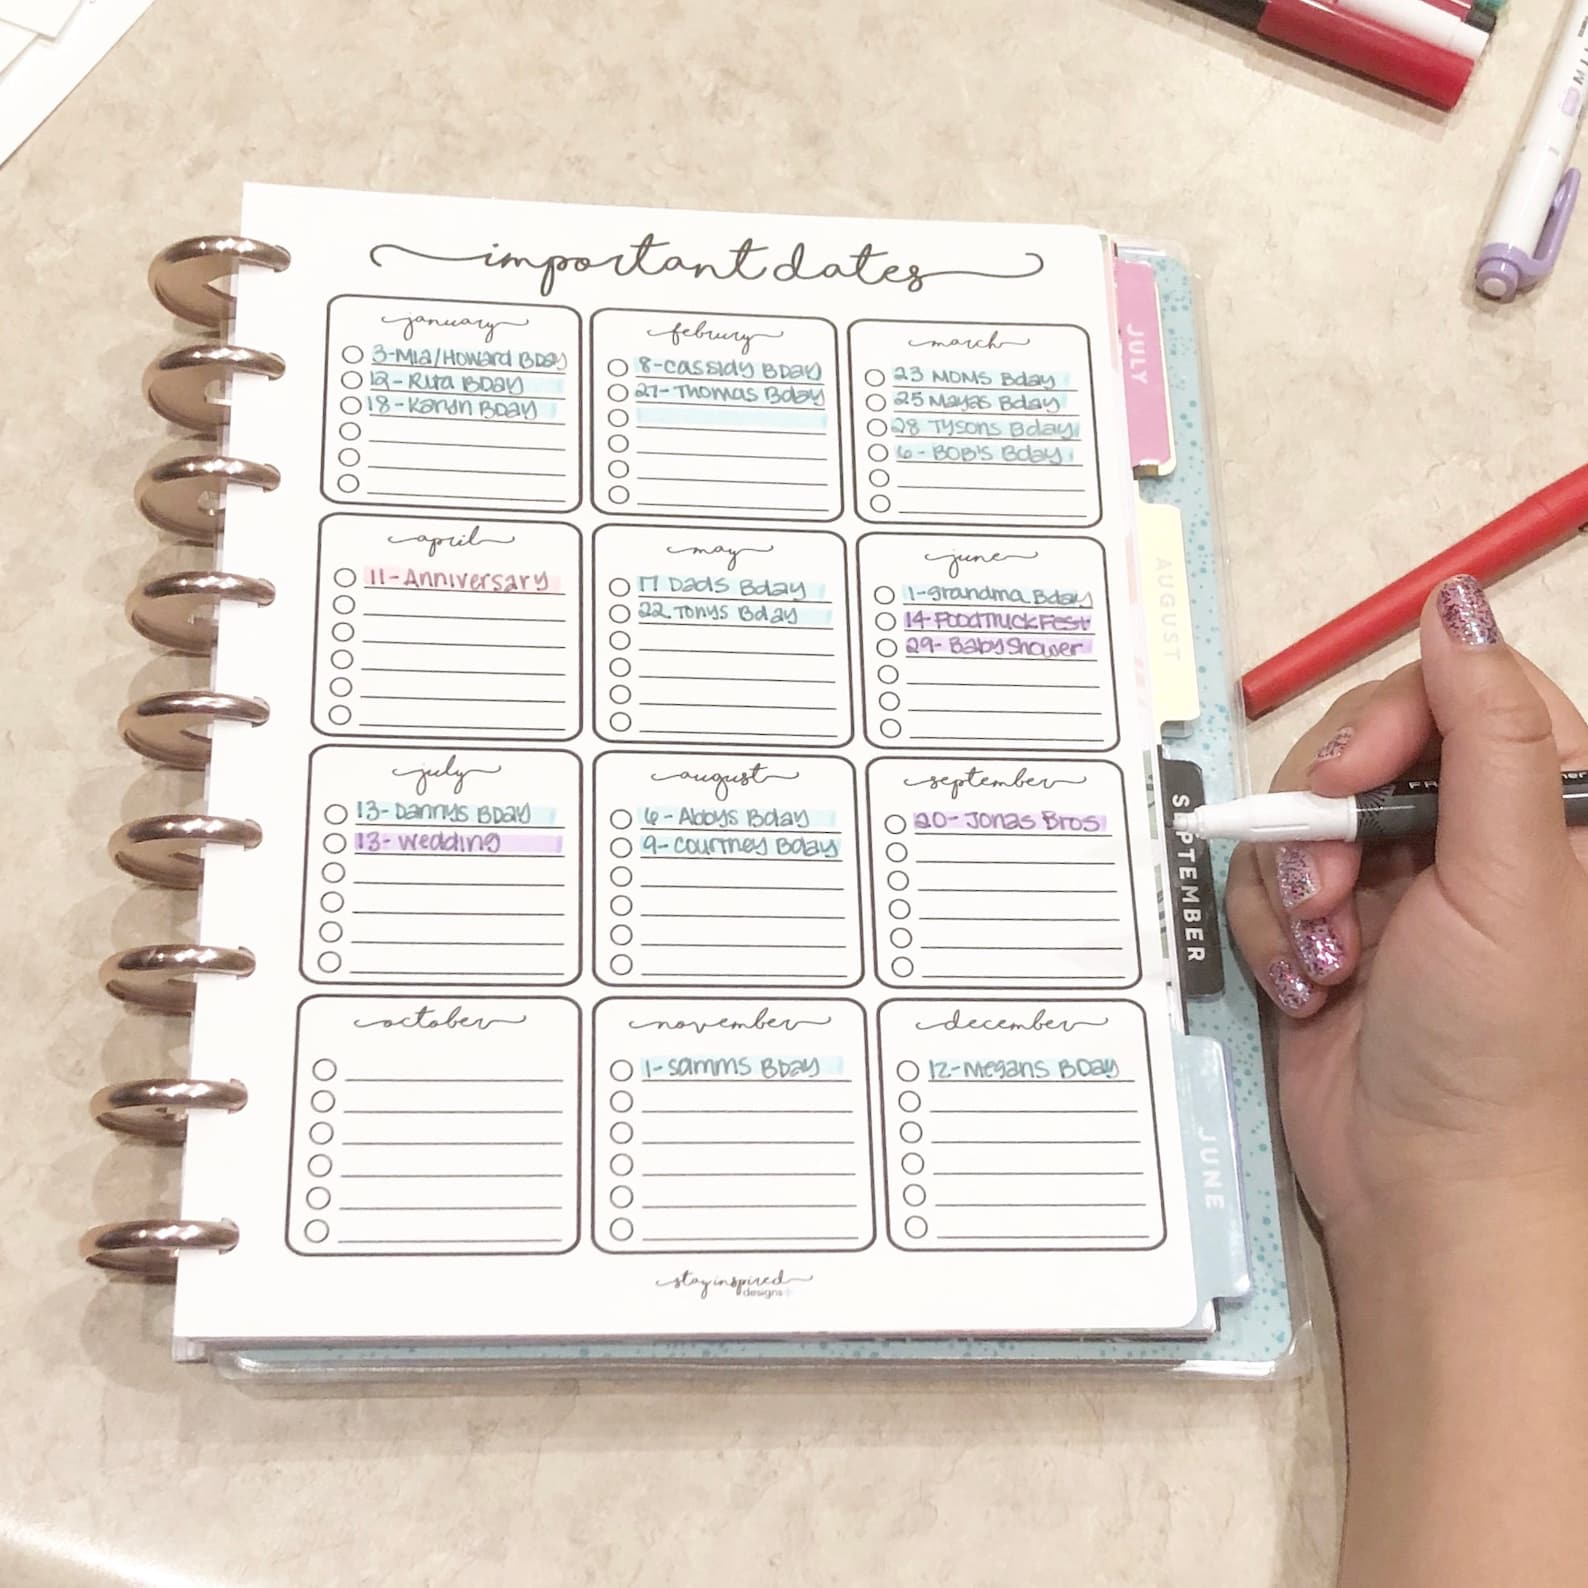 important dates
january
3-Mia/Howard BDay
12- Rita BDay
18-Karyn BDay
februry
8-cassidy BDay
27-Thomas Bday
march
23 MOMS Bday
25 Mayas Bday
28 Tysons Bday
6 - BOB'S Bday
april
11-Anniversary
may
17 Dads Bday
22 Tonys Bday
june
1-grandma Bday
14-FoodTruckFest
29- Baby Shower
july
13- Dannys BDay
13- wedding
august
6 - Abbys Bday
9- Courtney Bday
september
20- Jonas Bros
october
november
1-samms BDay
december
12-Megans BDay
stay inspired
designs
JULY
AUGUST
SEPTEMBER
JUNE